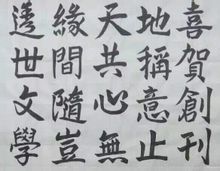 緣天地喜
世間共稱賀
文隨心意創
學豈無止刊